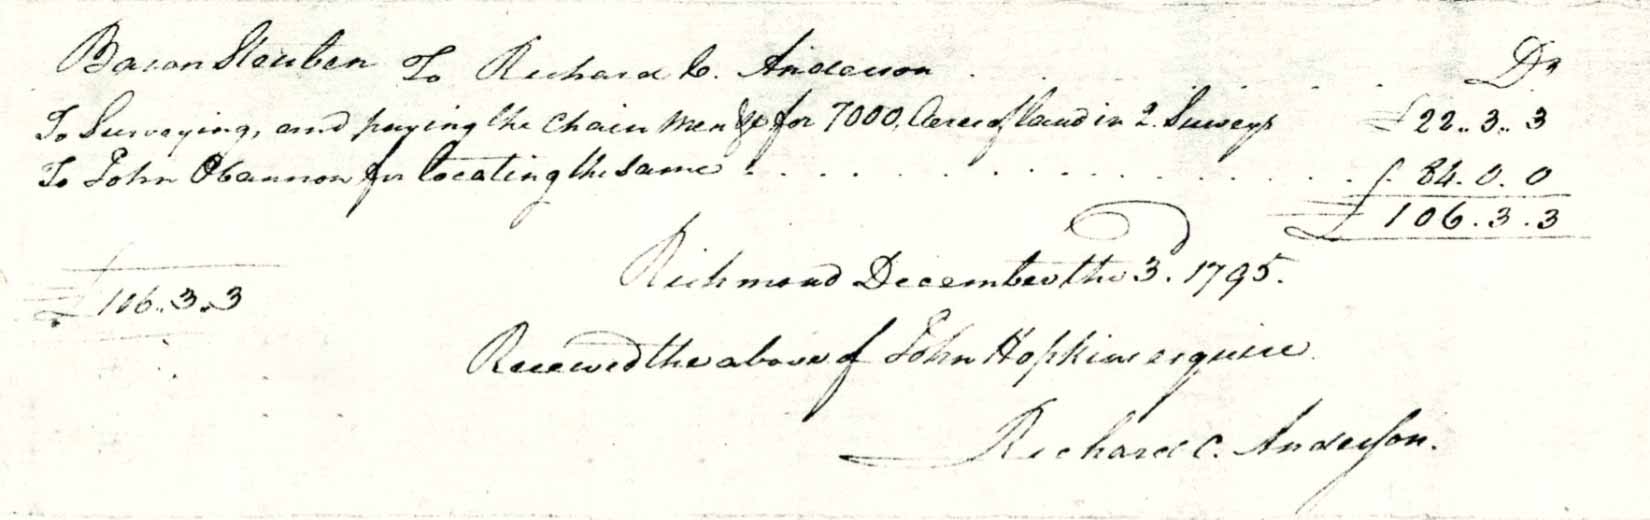 Baron Steuben To Richard C. Anderson . . . . . . Dr
To Surveying, and paying the Chain Men &c for 7000, Acres of land in 2. Surveys £ 22..3..3
To John Obannon for locating the same . . . . . . . . . . . . . . . £. 84.0.0
£ 106.3.3
Richmond December the 3. 1795.
£ 106..3..3
Received the above of John Hopkins esquire.
Richard C. Anderson.